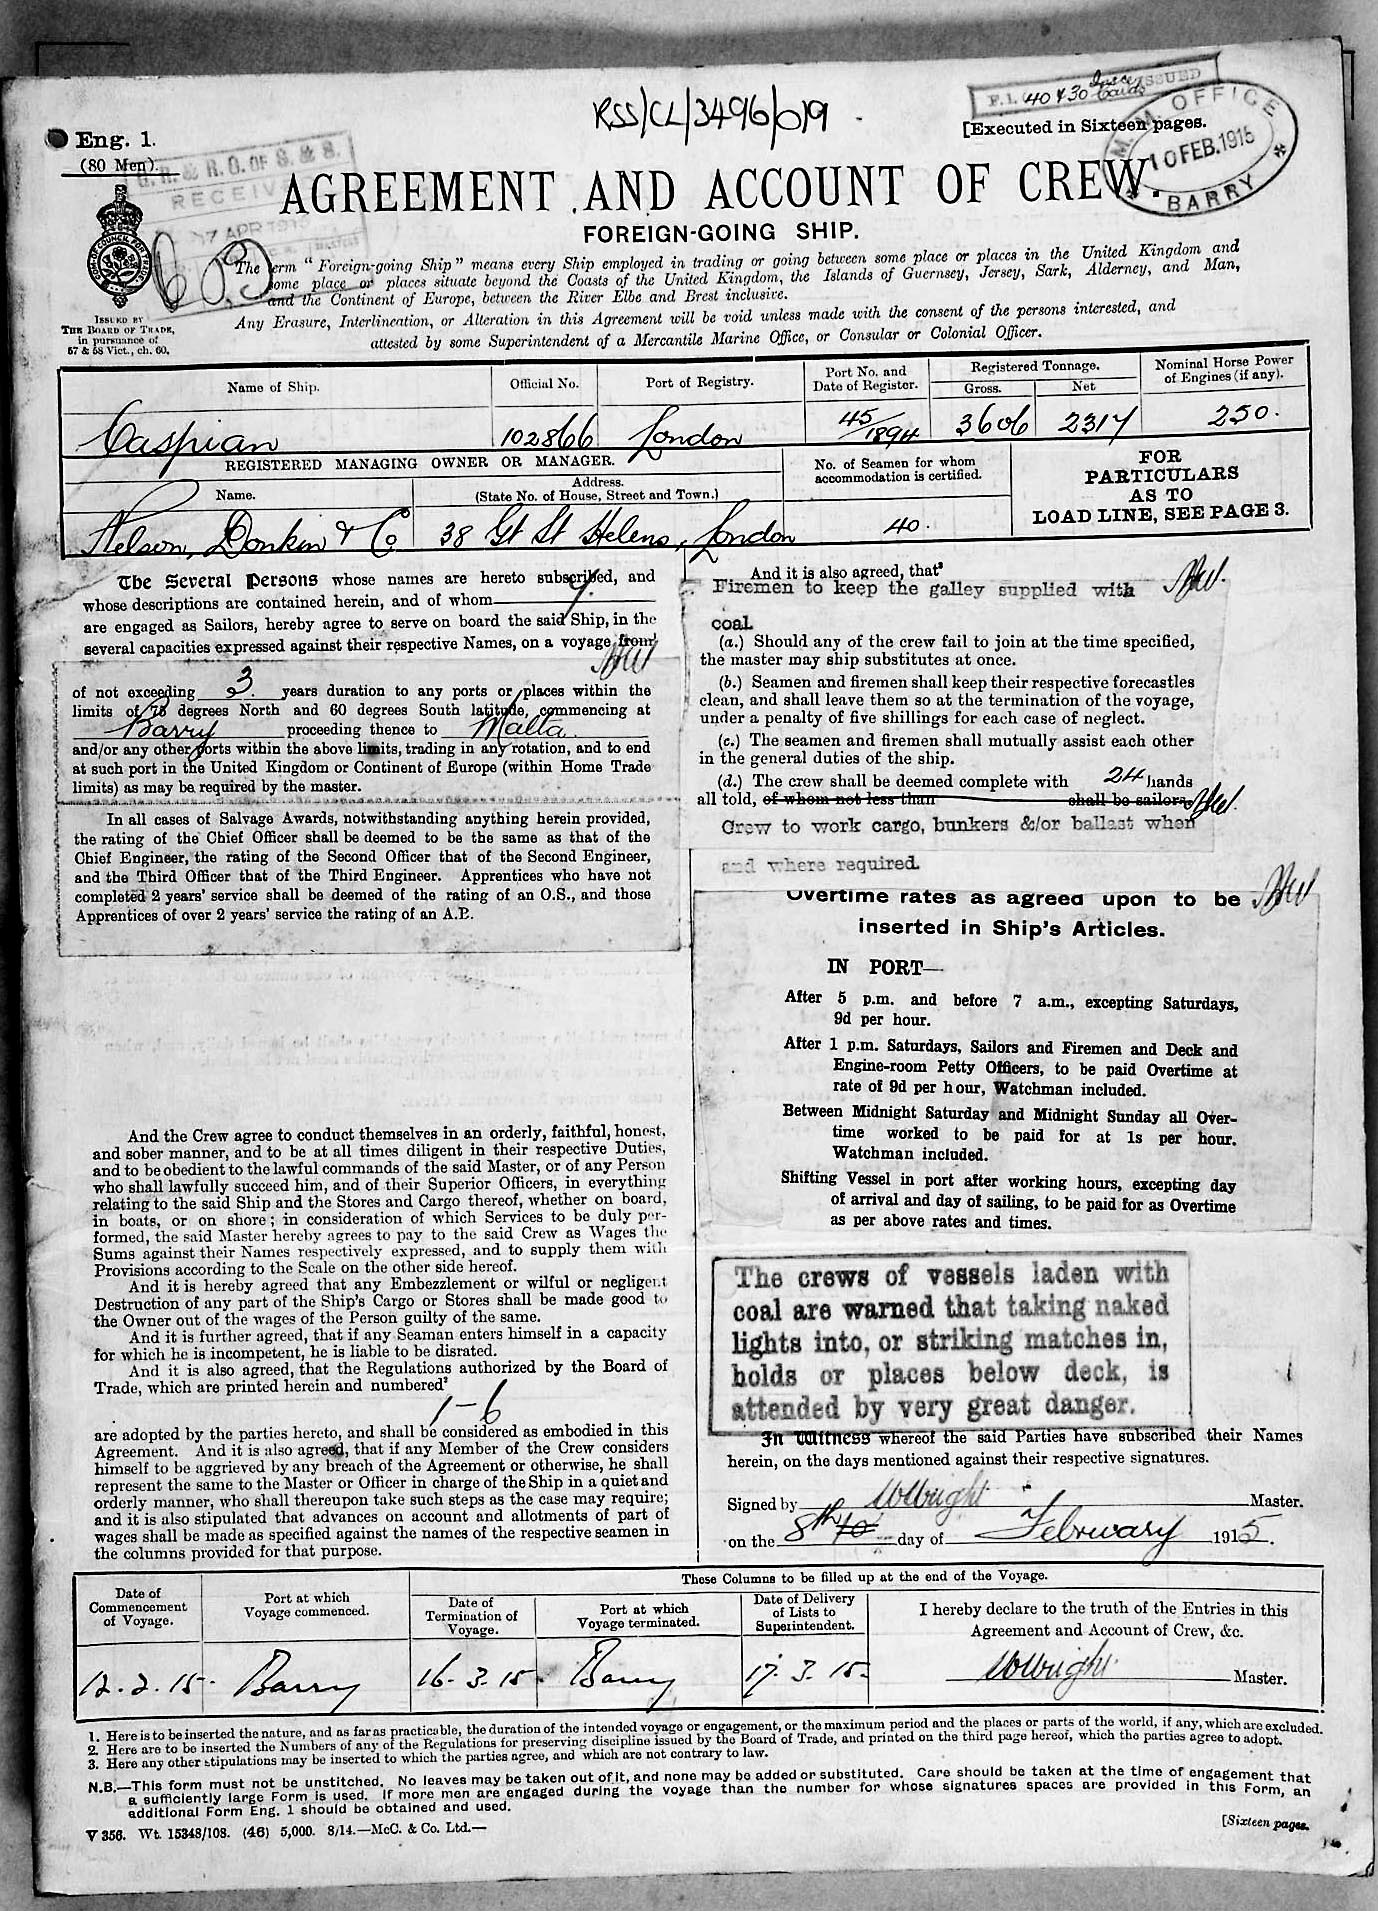 RSS/CL/3496/019
F.I. 40 & 30 Cards ISSUED
[Executed in Sixteen pages.
M. M. OFFICE
10 FEB. 1915
BARRY
Eng. 1.
(80 Men).
G. R. & R. O. OF S. & S.
RECEIV
7 APR 1915
AGREEMENT AND ACCOUNT OF CREW.
FOREIGN-GOING SHIP.
ISSUED BY
THE BOARD OF TRADE,
in pursuance of
57 & 58 Vict., ch. 60.
The term "Foreign-going Ship" means every Ship employed in trading or going between some place or places in the United Kingdom and
some place or places situate beyond the Coasts of the United Kingdom, the Islands of Guernsey, Jersey, Sark, Alderney, and Man,
and the Continent of Europe, between the River Elbe and Brest inclusive.
Any Erasure, Interlineation, or Alteration in this Agreement will be void unless made with the consent of the persons interested, and
attested by some Superintendent of a Mercantile Marine Office, or Consular or Colonial Officer.
Name of Ship. Official No. Port of Registry. Port No. and Date of Register. Registered Tonnage. Gross. Net Nominal Horse Power of Engines (if any).
Caspian 102866 London 45/1894 3606 2317 250.
REGISTERED MANAGING OWNER OR MANAGER.
Name. Address. (State No. of House, Street and Town.)
No. of Seamen for whom accommodation is certified.
FOR
PARTICULARS
AS TO
LOAD LINE, SEE PAGE 3.
Nelson, Donkin & Co 38 Gt St Helens, London 40.
The Several Persons whose names are hereto subscribed, and
whose descriptions are contained herein, and of whom
are engaged as Sailors, hereby agree to serve on board the said Ship, in the
several capacities expressed against their respective Names, on a voyage from
of not exceeding 3. years duration to any ports or places within the
limits of 75 degrees North and 60 degrees South latitude, commencing at
Barry proceeding thence to Malta
and/or any other ports within the above limits, trading in any rotation, and to end
at such port in the United Kingdom or Continent of Europe (within Home Trade
limits) as may be required by the master.
In all cases of Salvage Awards, notwithstanding anything herein provided,
the rating of the Chief Officer shall be deemed to be the same as that of the
Chief Engineer, the rating of the Second Officer that of the Second Engineer,
and the Third Officer that of the Third Engineer. Apprentices who have not
completed 2 years' service shall be deemed of the rating of an O.S., and those
Apprentices of over 2 years' service the rating of an A.B.
And the Crew agree to conduct themselves in an orderly, faithful, honest,
and sober manner, and to be at all times diligent in their respective Duties,
and to be obedient to the lawful commands of the said Master, or of any Person
who shall lawfully succeed him, and of their Superior Officers, in everything
relating to the said Ship and the Stores and Cargo thereof, whether on board,
in boats, or on shore; in consideration of which Services to be duly per-
formed, the said Master hereby agrees to pay to the said Crew as Wages the
Sums against their Names respectively expressed, and to supply them with
Provisions according to the Scale on the other side hereof.
And it is hereby agreed that any Embezzlement or wilful or negligent
Destruction of any part of the Ship's Cargo or Stores shall be made good to
the Owner out of the wages of the Person guilty of the same.
And it is further agreed, that if any Seaman enters himself in a capacity
for which he is incompetent, he is liable to be disrated.
And it is also agreed, that the Regulations authorized by the Board of
Trade, which are printed herein and numbered²
1-6
are adopted by the parties hereto, and shall be considered as embodied in this
Agreement. And it is also agreed, that if any Member of the Crew considers
himself to be aggrieved by any breach of the Agreement or otherwise, he shall
represent the same to the Master or Officer in charge of the Ship in a quiet and
orderly manner, who shall thereupon take such steps as the case may require;
and it is also stipulated that advances on account and allotments of part of
wages shall be made as specified against the names of the respective seamen in
the columns provided for that purpose.
And it is also agreed, that³
Firemen to keep the galley supplied with
coal
(a.) Should any of the crew fail to join at the time specified,
the master may ship substitutes at once.
(b.) Seamen and firemen shall keep their respective forecastles
clean, and shall leave them so at the termination of the voyage,
under a penalty of five shillings for each case of neglect.
(c.) The seamen and firemen shall mutually assist each other
in the general duties of the ship.
(d.) The crew shall be deemed complete with 24 hands
all told, of whom not less than shall be sailors
Crew to work cargo, bunkers &/or ballast when
and where required.
Overtime rates as agreed upon to be
inserted in Ship's Articles.
IN PORT—
After 5 p.m. and before 7 a.m., excepting Saturdays,
9d per hour.
After 1 p.m. Saturdays, Sailors and Firemen and Deck and
Engine-room Petty Officers, to be paid Overtime at
rate of 9d per hour, Watchman included.
Between Midnight Saturday and Midnight Sunday all Over-
time worked to be paid for at 1s per hour.
Watchman included.
Shifting Vessel in port after working hours, excepting day
of arrival and day of sailing, to be paid for as Overtime
as per above rates and times.
The crews of vessels laden with
coal are warned that taking naked
lights into, or striking matches in,
holds or places below deck, is
attended by very great danger.
In Witness whereof the said Parties have subscribed their Names
herein, on the days mentioned against their respective signatures.
Signed by WWright Master.
on the 8th 10 day of February 1915.
These Columns to be filled up at the end of the Voyage.
Date of Commencement of Voyage. Port at which Voyage commenced. Date of Termination of Voyage. Port at which Voyage terminated. Date of Delivery of Lists to Superintendent.
I hereby declare to the truth of the Entries in this
Agreement and Account of Crew, &c.
12.2.15. Barry 16.3.15. Barry 17.3.15. WWright Master.
1. Here is to be inserted the nature, and as far as practicable, the duration of the intended voyage or engagement, or the maximum period and the places or parts of the world, if any, which are excluded.
2. Here are to be inserted the Numbers of any of the Regulations for preserving discipline issued by the Board of Trade, and printed on the third page hereof, which the parties agree to adopt.
3. Here any other stipulations may be inserted to which the parties agree, and which are not contrary to law.
N.B.—This form must not be unstitched. No leaves may be taken out of it, and none may be added or substituted. Care should be taken at the time of engagement that
a sufficiently large Form is used. If more men are engaged during the voyage than the number for whose signatures spaces are provided in this Form, an
additional Form Eng. 1 should be obtained and used.
V 356. Wt. 15348/108. (46) 5,000. 8/14.—McC. & Co. Ltd.—
[Sixteen pages.